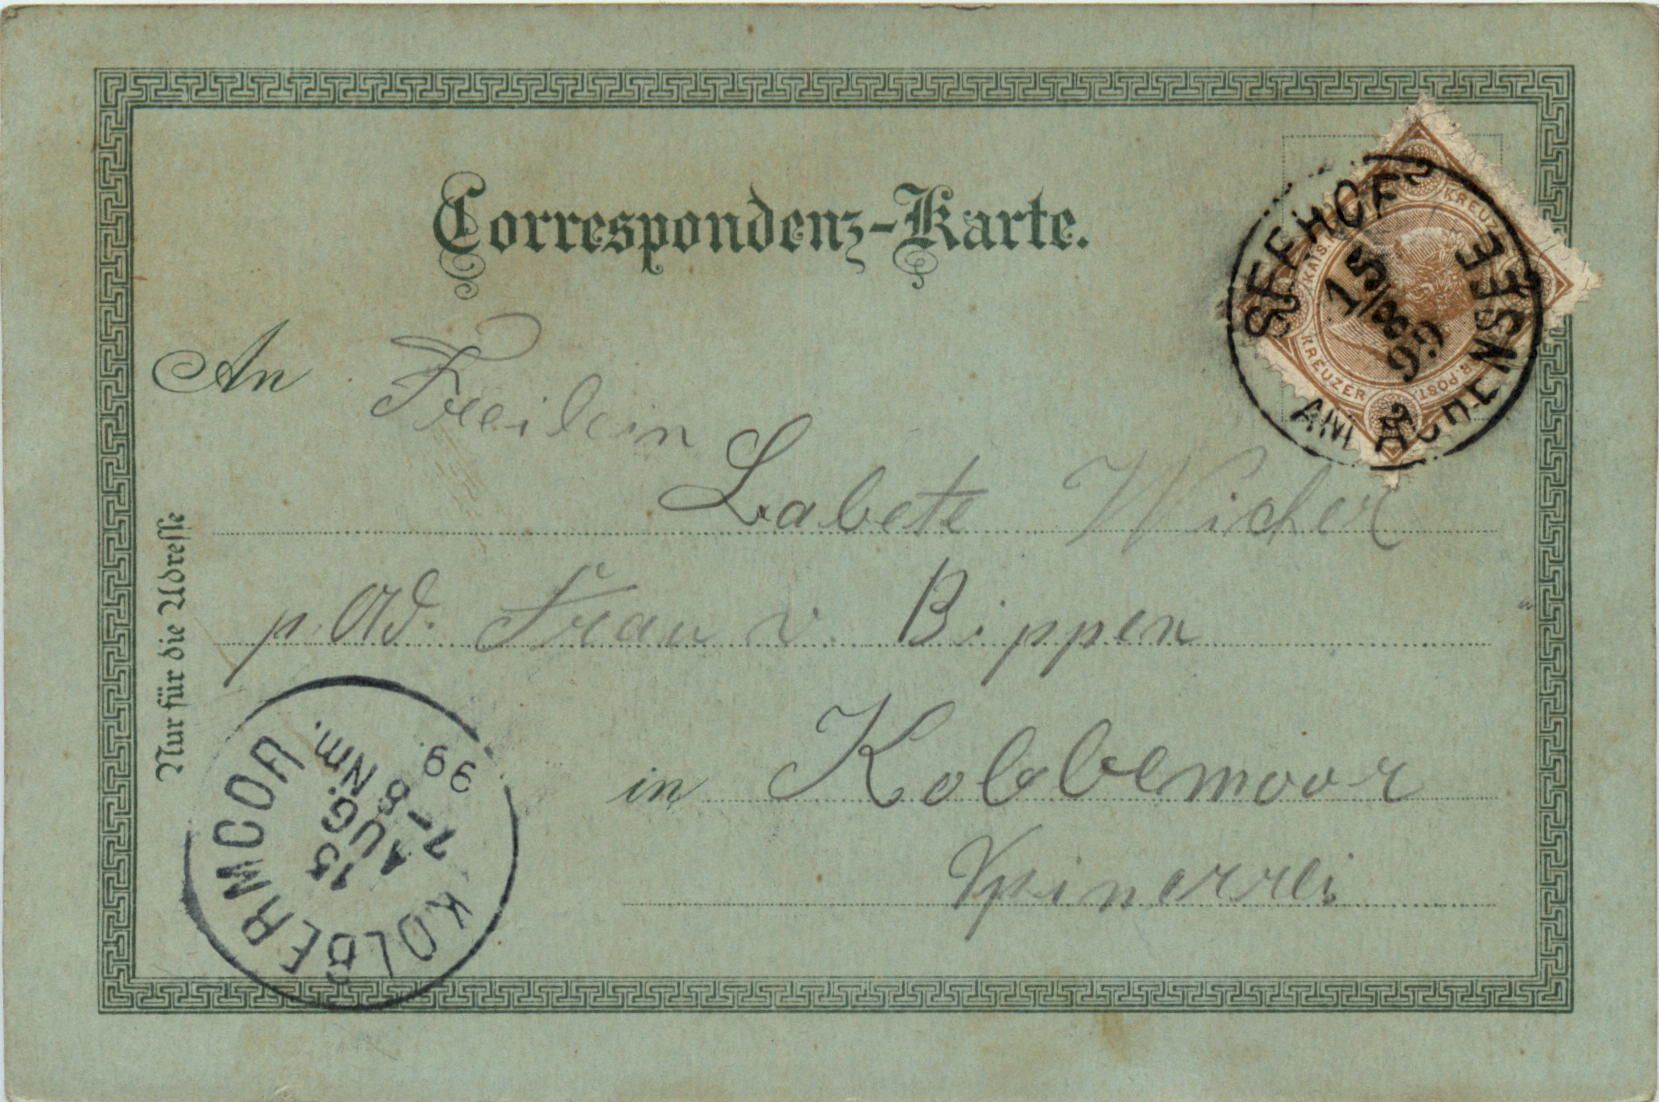 Correspondenz-Karte.
SEEHOF
AM ACHENSEE
15/8
99
KREUZER
KREUZER
An Freilein
Labete Wicher
p. Ad. Frau v. Bippen
in Kolbbemoor
Spinerrei
Nur für die Adresse
KOLBERMOOR
15
AUG.
7-8 Nm.
99